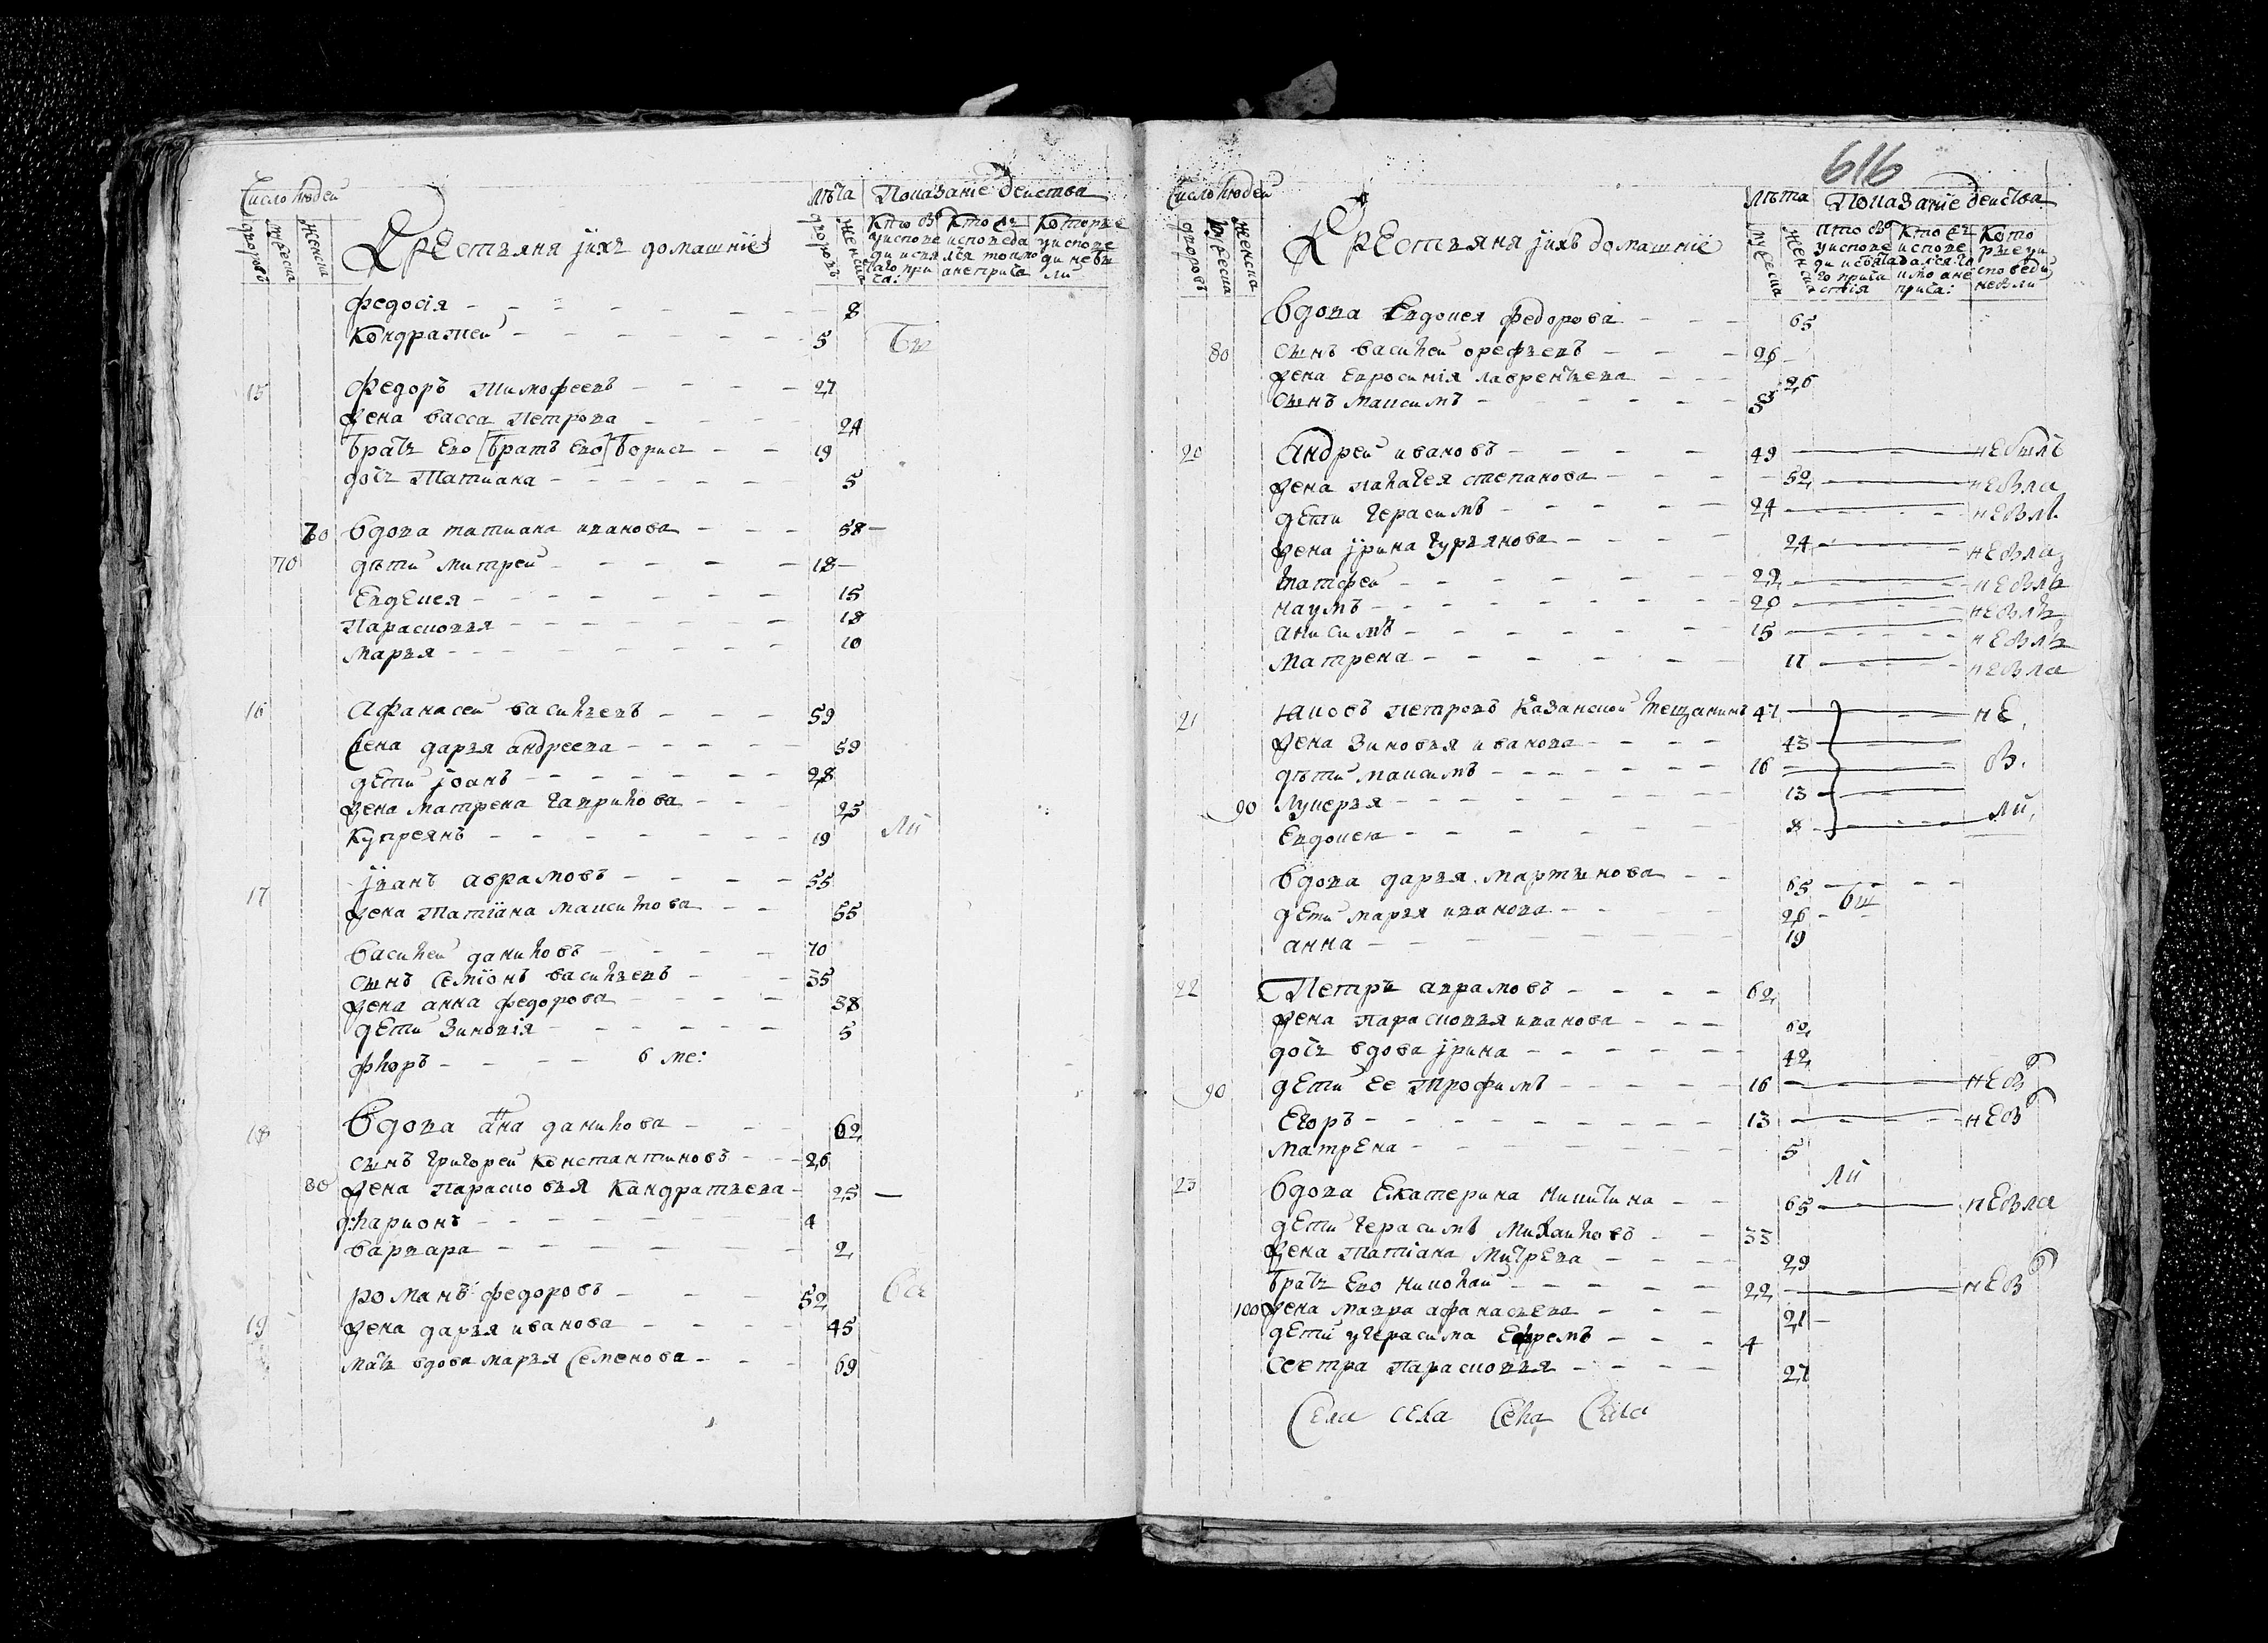 Число людей
дворовъ
мужеска
женска
Крестьяня ихъ домашние
лѣта
дворовъ
женска
Показание действа
Кто въ у исповеди и свят. таго прича:
Кто съ исповедался токмо а не прича
Которые у исповеди не были
федосия 8
Кондратей 5 Бы
15 федоръ Тимофеевъ 27
жена васса Петрова 24
братъ Ево [братъ Ево] борисъ 19
дочь Татиана 5
70 вдова татиана иванова 58
70 дѣти митрей 18
Евдокея 15
Парасковья 18
марья 10
16 афанасей васильевъ 59
жена дарья андреева 59
дети иоанъ 28
жена матрена гаврилова 25
Купреянъ 19 ли
17 иванъ аврамовъ 55
жена татиана максимова 55
василей даниловъ 70
сынъ семионъ васильевъ 35
жена анна федорова 38
дети зиновия 5
флоръ 6 ме:
18 вдова анна данилова 62
сынъ григорей Константиновъ 26
80 жена парасковья Кандратьева 25
д: ларионъ 4
варвара 2
романъ федоровъ 52 Вси
19 жена дарья иванова 45
мать вдова марья семенова 69
616
Число людей
дворовъ
мужеска
женска
Крестьяня ихъ домашние
лѣта
мужеска
женска
Показание действа
Кто въ у исповеди и святаго причастия
Кто съ исповедался токмо а не прича:
Которые у исповеди не были
вдова Евдокея федорова 65
80 сынъ василей орефьевъ 26
жена евросиния лаврентьева 26
сынъ максимъ 3
20 андрей ивановъ 49 не былъ
жена палагея степанова 52 не была
дети герасимъ 24 не был
жена ирина гурьянова 24 не была
матфей 22 не была
наумъ 20 не былъ
анисимъ 15 не былъ
матрена 11 не была
21 Иаковъ петровъ Казанской мещанинъ 47 не
жена зиновья иванова 43
дѣти максимъ 16 бы
90 лукерья 13
Евдокея 8 ли
вдова дарья мартынова 65
дети марья иванова 26 бы
анна 19
22 Петръ аврамовъ 62
жена парасковья иванова 60
дочь вдова ирина 42
90 дети ее трофимъ 16 не б
Егоръ 13 не б
матрена 5
ли
23 вдова Екатерина никитина 65 не была
дети герасимъ михаиловъ 33
жена татиана митрева 29
братъ Ево николай 22 не б
100 жена мавра афанасьева 21
дети у герасима Ефремъ 4
сестра парасковья 27
Села села Села Села